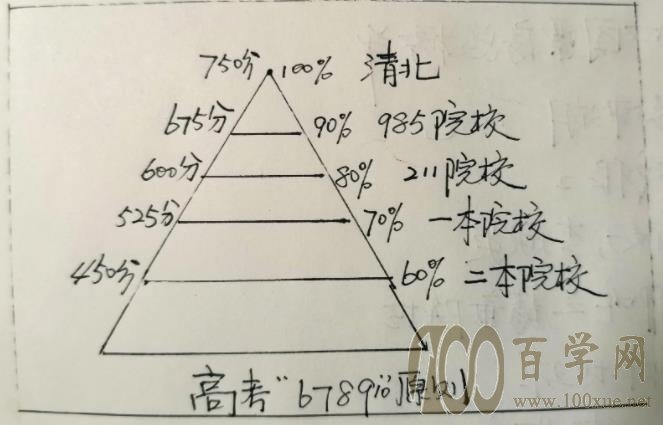 750分 100% 清北
675分 90% 985院校
600分 80% 211院校
525分 70% 一本院校
450分 60% 二本院校
高考"6789"原则
100百学网
www.100xue.net